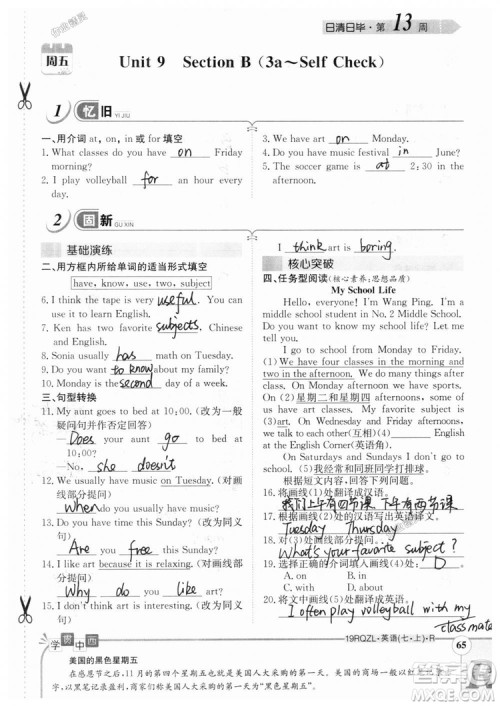 日清日毕·第 13 周
周五
Unit 9 Section B (3a～Self Check)
1 忆旧 YI JIU
一、用介词 at, on, in 或 for 填空
1. What classes do you have on Friday
morning?
2. I play volleyball for an hour every day.
3. We have art on Monday.
4. Do you have music festival in June?
5. The soccer game is at 2:30 in the
afternoon.
2 固新 GU XIN
基础演练
二、用方框内所给单词的适当形式填空
have, know, use, two, subject
6. I think the tape is very useful.
7. Ken has two favorite subjects, Chinese
and English.
8. Sonia usually has math on Tuesday.
9. Do you know about his family?
10. Monday is the second day of a week.
三、句型转换
11. My aunt goes to bed at 10:00. (改为一般
疑问句并作否定回答)
— Does your aunt go to bed at
10:00?
— No, she doesn't.
12. We usually have music on Tuesday. (对画
线部分提问)
When do you usually have music?
13. Do you have time this Sunday? (改为同义
句)
Are you free this Sunday?
14. I like art because it is relaxing. (对画线部
分提问)
Why do you like art?
15. I don't think art is interesting. (改为同义
句)
I think art is boring.
核心突破
四、任务型阅读 (核心素养:思想品质)
My School Life
Hello, everyone! I am Wang Ping. I'm a
middle school student in No. 2 Middle School.
Do you want to know my school life? Let me
tell you.
I go to school from Monday to Friday.
(1) We have four classes in the morning and
two in the afternoon. We do many things after
class. We like playing ball games and singing.
On (2) 星期二和星期四 we have an art
class. My favorite subject is English. (3) I
think it's interesting. All my classmates like
to talk with each other(互相)(4) English
at the English Corner(英语角).
On Saturdays and Sundays I don't go to
school. (5) 我经常和同班同学打排球.
根据短文内容,回答下列问题。
16. 将画线(1)句翻译成汉语。
我们上午有四节课 下午有两节课
17. 根据画线(2)处的汉语写出英语译文。
Tuesday Thursday
18. 对画线部分(3)提问。
What's your favorite subject?
19. 选择正确的介词填入画线(4)处 D
A. on B. in
C. with D. about
20. 将画线(5)部分翻译成英语。
I often play volleyball with my
classmate
学贯中西
19RQZL·英语(七·上)·R
65
美国的黑色星期五